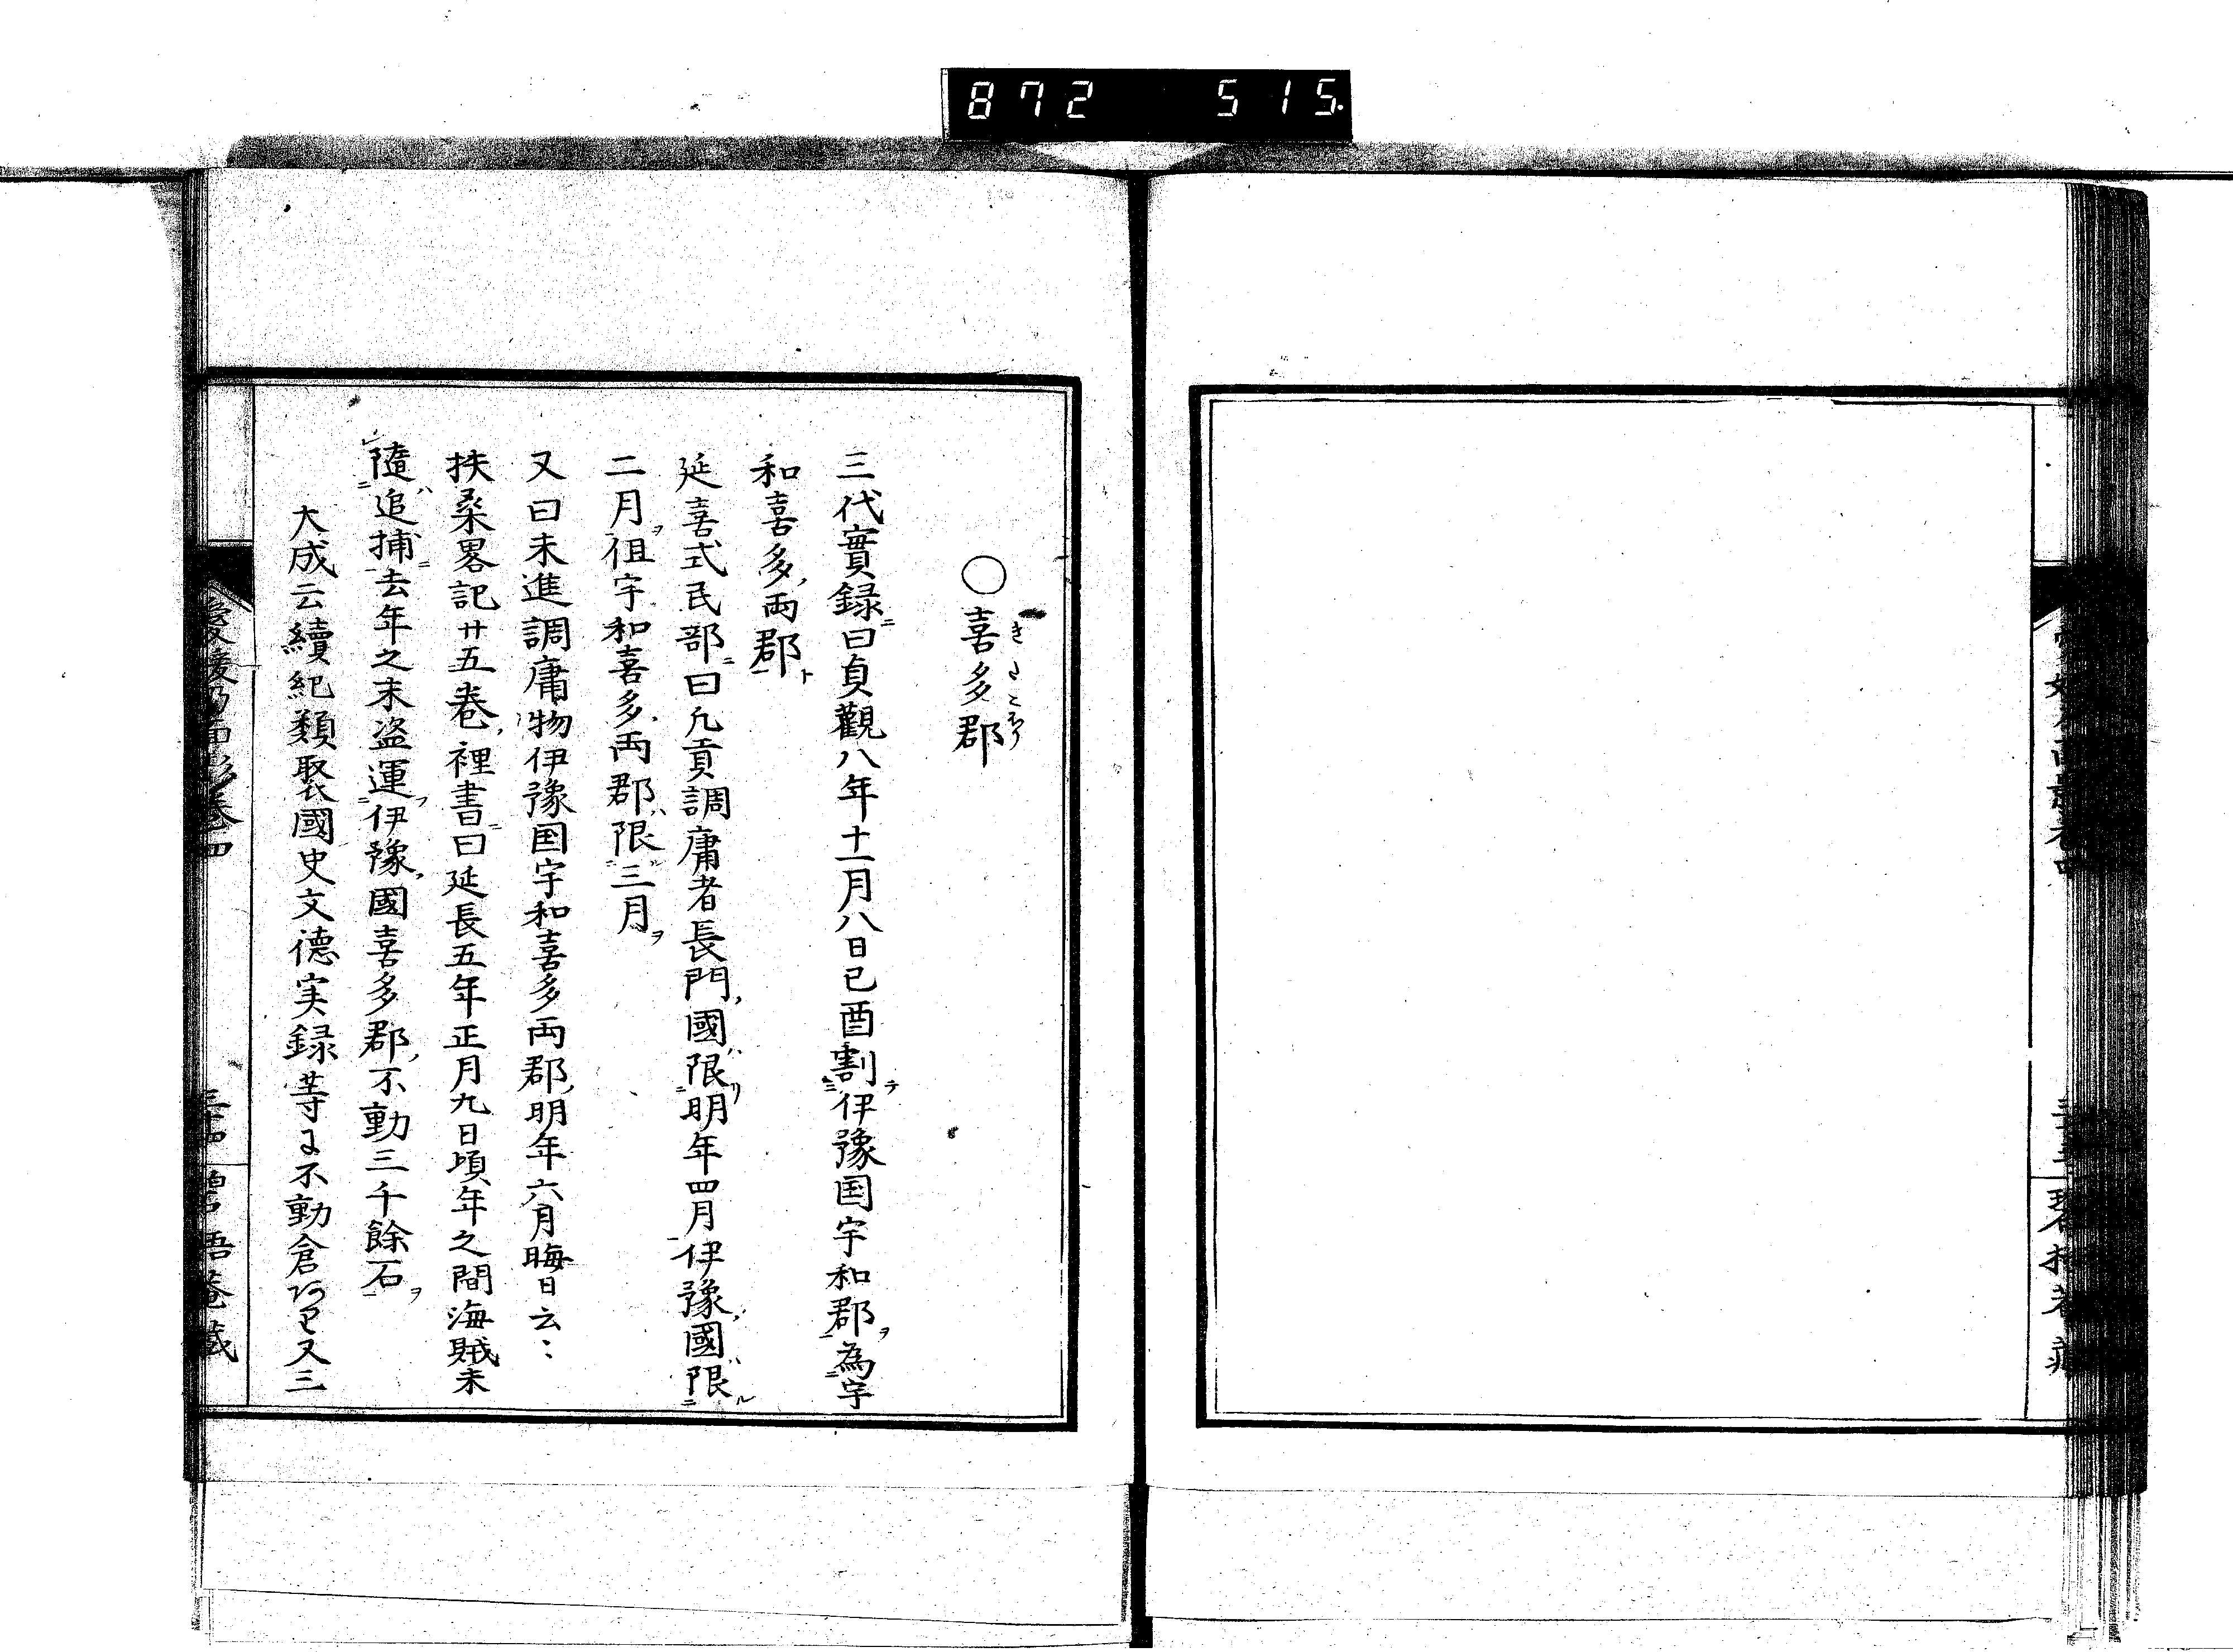 872 515
○喜多郡
三代實録曰貞觀八年十一月八日己酉割伊豫国宇和郡為宇
和喜多両郡
延喜式民部曰凡貢調庸者長門國限明年四月伊豫國限
二月但宇和喜多両郡限三月
又曰未進調庸物伊豫国宇和喜多両郡明年六月晦日云〻
扶桑畧記廿五巻裡書曰延長五年正月九日頃年之間海賊未
隨追捕去年之末盗運伊豫國喜多郡不動三千餘石
大成云續紀類聚國史文德実録等に不動倉
又三
愛媛乃面影巻四
三十四
碧梧菴藏